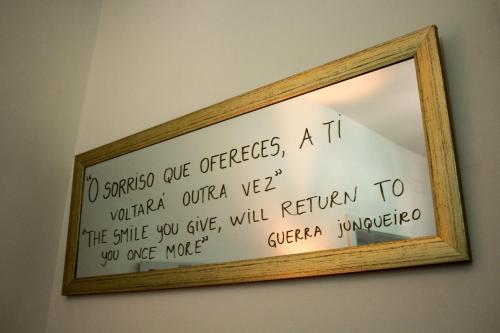 "O SORRISO QUE OFERECES, A TI
VOLTARÁ OUTRA VEZ"
"THE SMILE YOU GIVE, WILL RETURN TO
YOU ONCE MORE"
GUERRA JUNQUEIRO